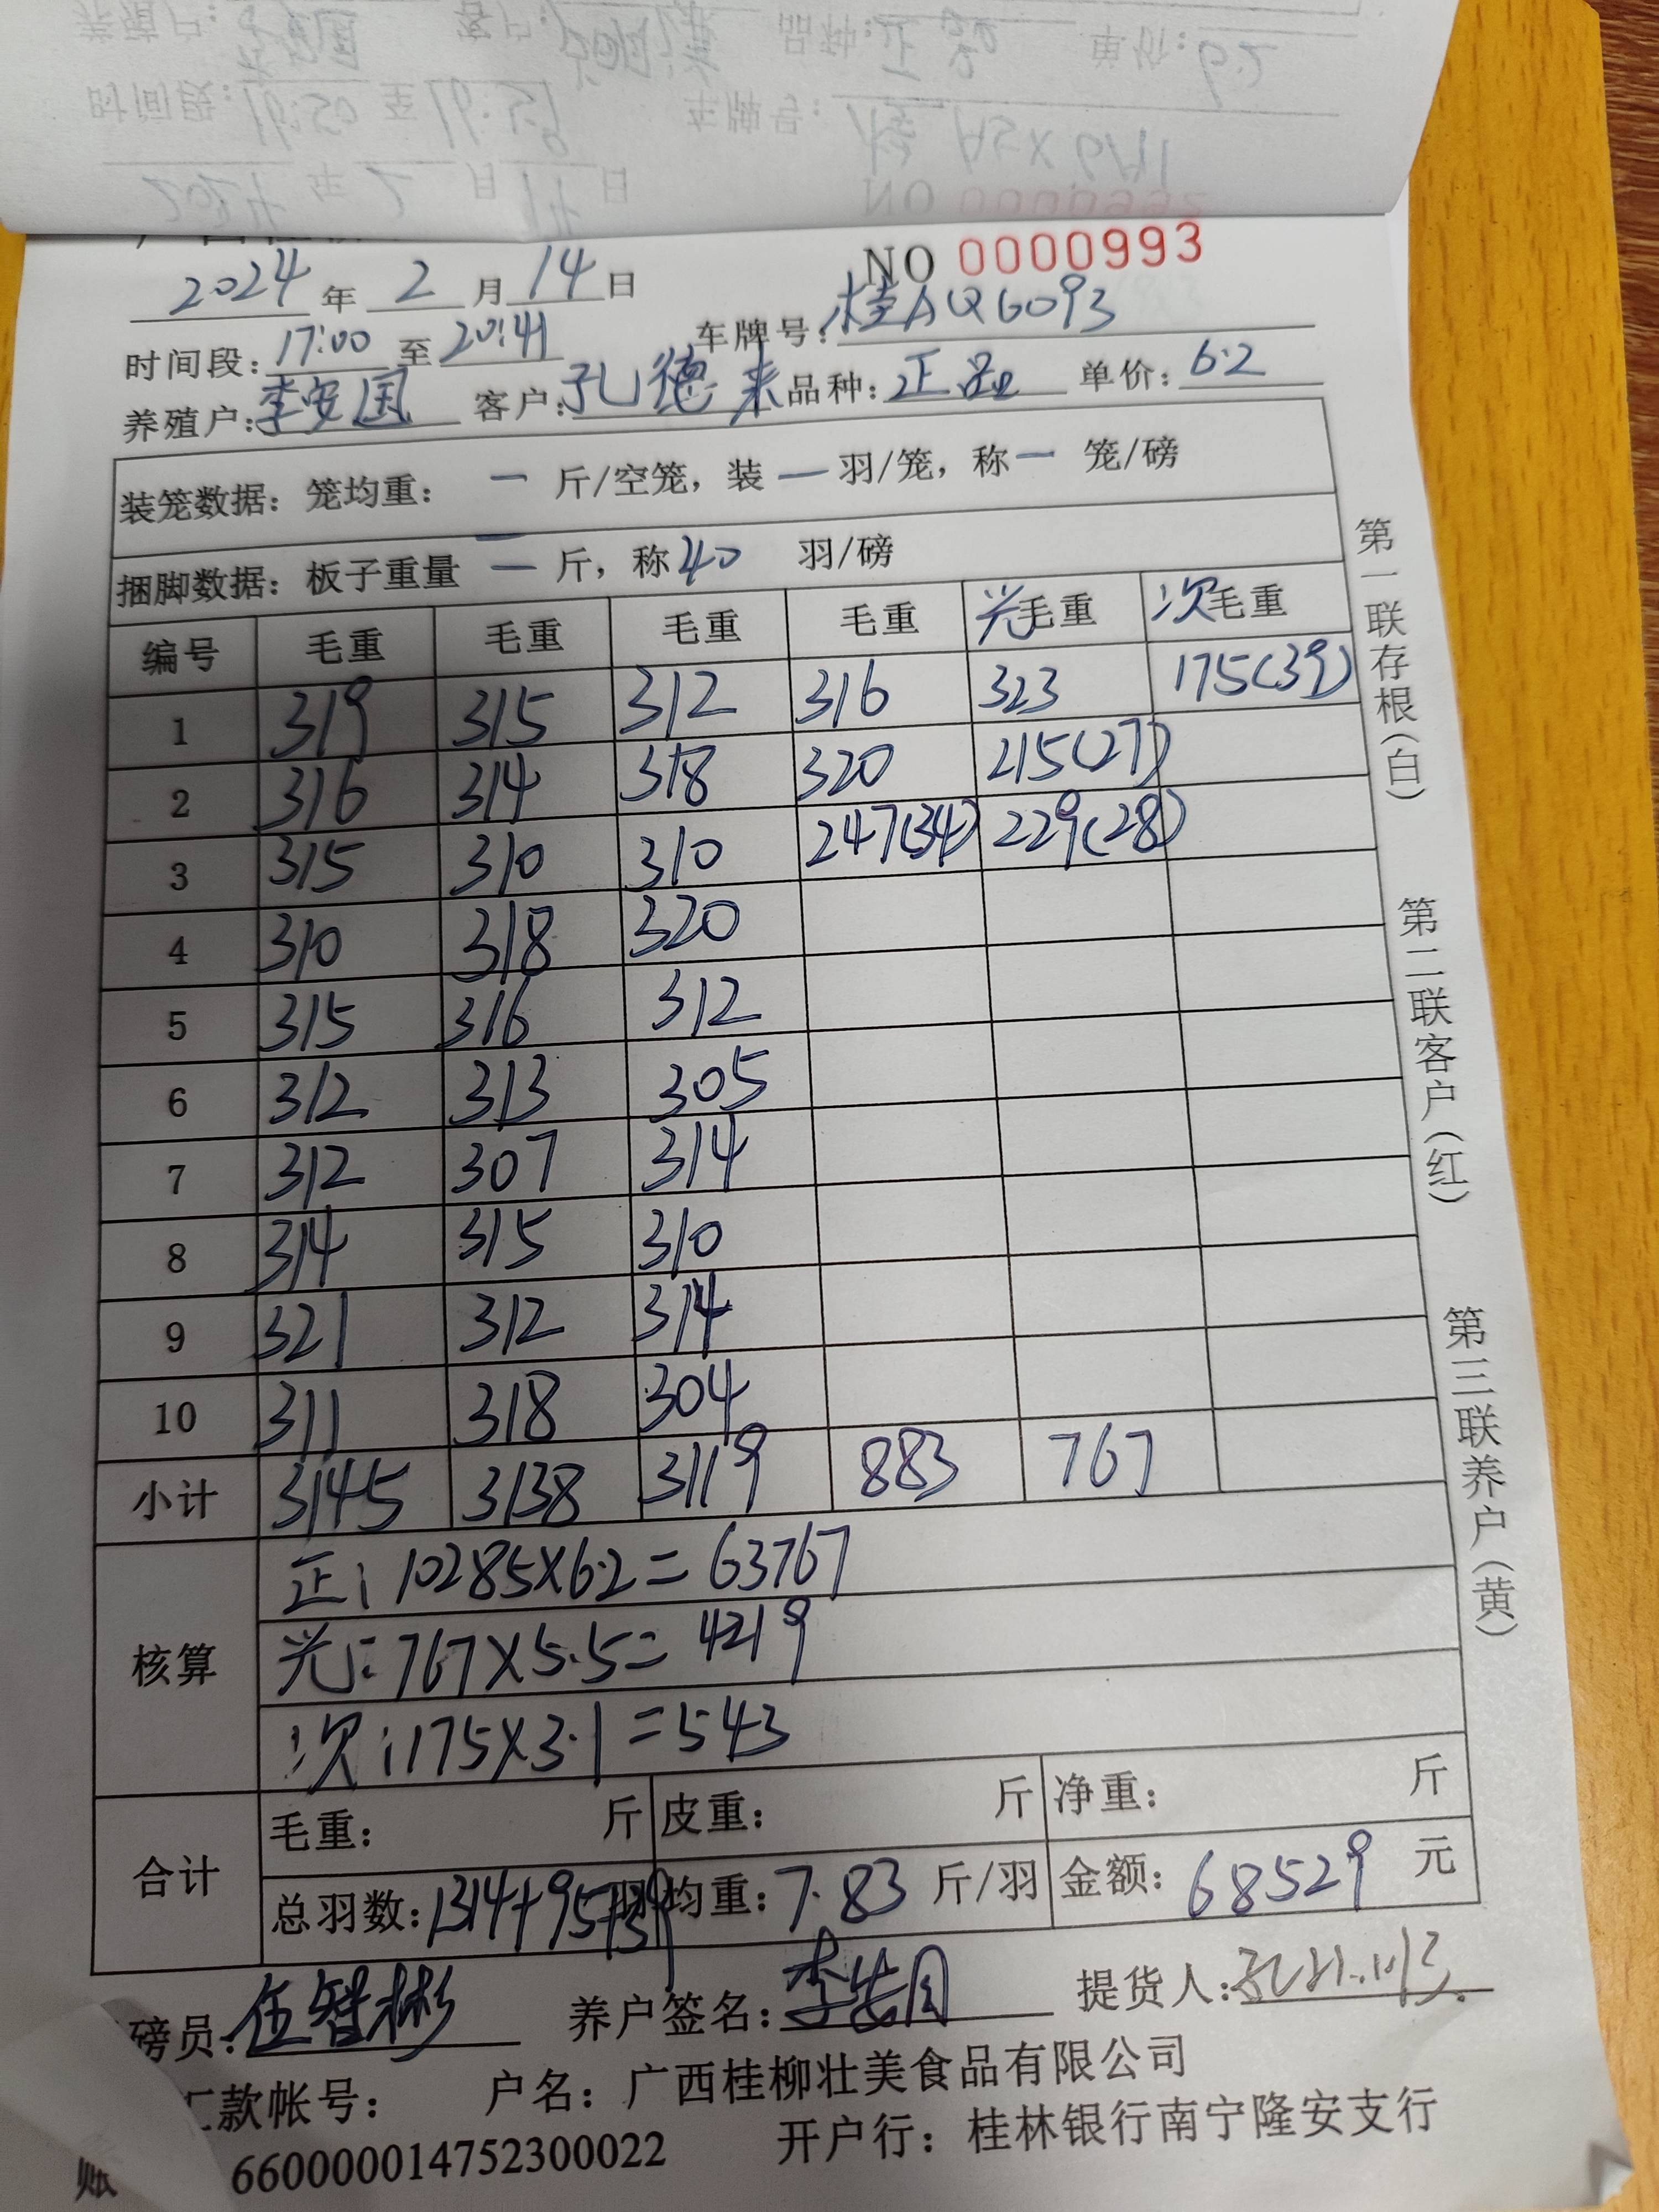 NO 0000993
2024 年 2 月 14 日
时间段: 17:00 至 20:41 车牌号: 桂AQ6093
养殖户: 李安国 客户: 孔德来 品种: 正品 单价: 6.2
装笼数据: 笼均重: 一 斤/空笼, 装 一 羽/笼, 称 一 笼/磅
捆脚数据: 板子重量 一 斤, 称 40 羽/磅
编号 毛重 毛重 毛重 毛重 光毛重 次毛重
1 319 315 312 316 323 175(39)
2 316 314 318 320 215(27)
3 315 310 310 247(34) 229(28)
4 310 318 320
5 315 316 312
6 312 313 305
7 312 307 314
8 314 315 310
9 321 312 314
10 311 318 304
小计 3145 3138 3119 883 767
核算
正: 10285×6.2=63767
光: 767×5.5=4219
次: 175×3.1=543
合计
毛重: 斤 皮重: 斤 净重: 斤
总羽数: 1314+95+39 羽 均重: 7.83 斤/羽 金额: 68529 元
磅员: 伍智彬 养户签名: 李安国 提货人:
汇款帐号: 户名: 广西桂柳壮美食品有限公司
账 660000014752300022 开户行: 桂林银行南宁隆安支行
第一联存根(白)
第二联客户(红)
第三联养户(黄)